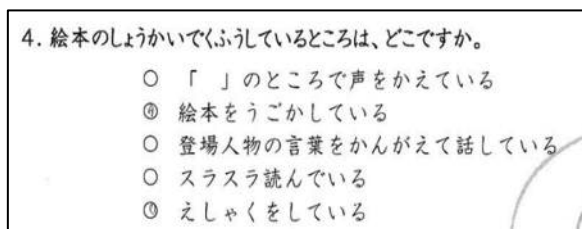 4. 絵本のしょうかいでくふうしているところは、どこですか。
○ 「 」のところで声をかえている
絵本をうごかしている
○ 登場人物の言葉をかんがえて話している
○ スラスラ読んでいる
えしゃくをしている